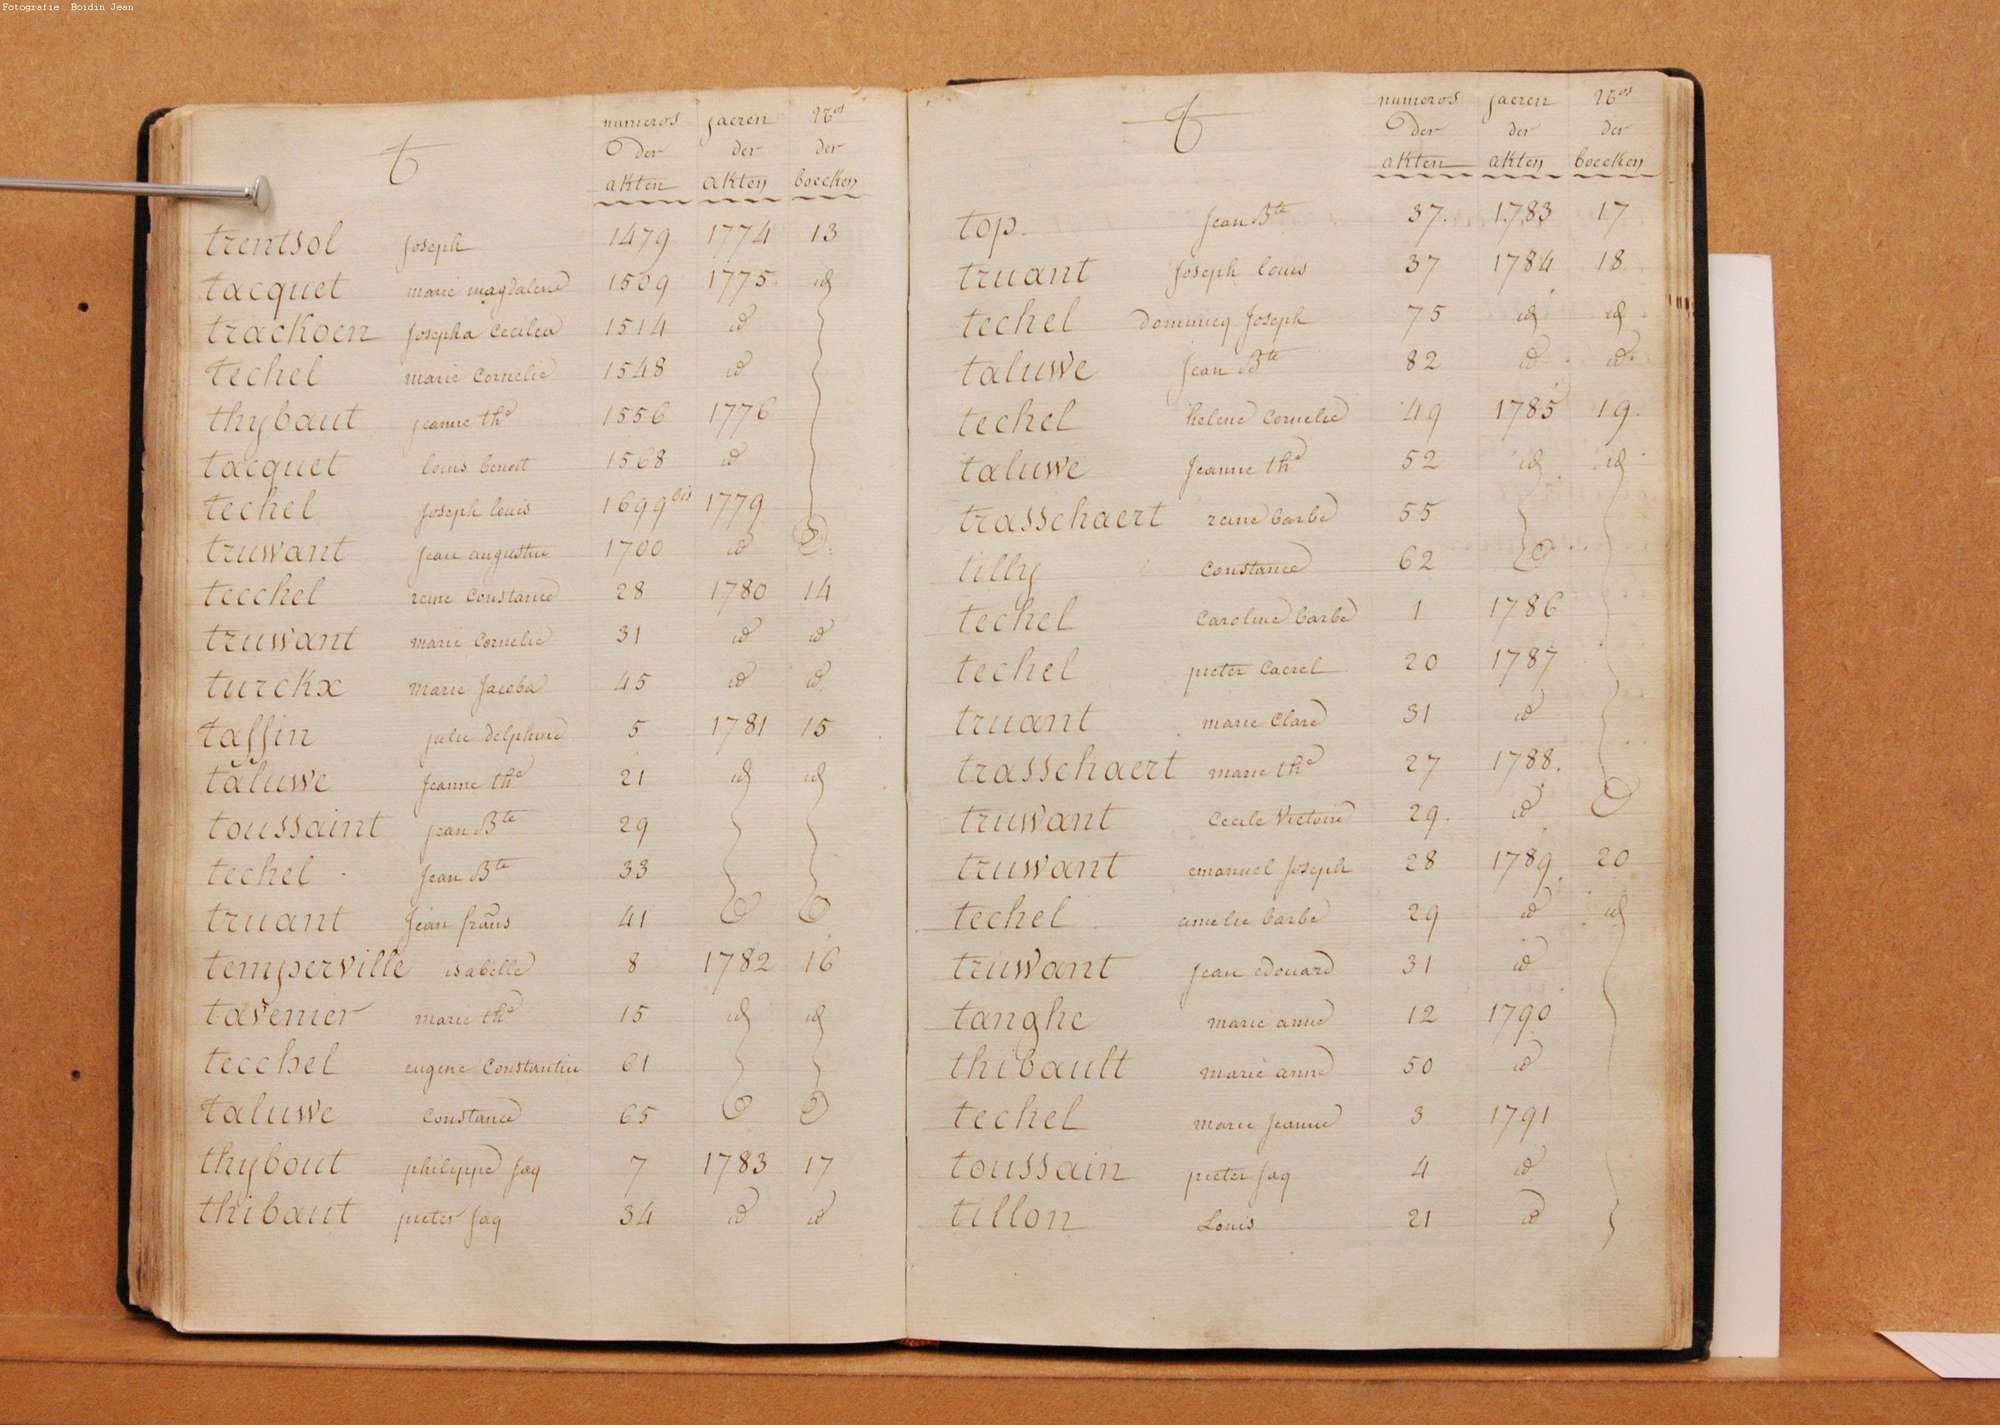 Fotografie Boidin Jean
t
numeros jaeren Nos
der der der
akten akten boecken
trentsol joseph 1479 1774 13
tacquet marie magdalene 1509 1775 id
trackoen josepha Cecilea 1514 id
techel marie Cornelie 1548 id
thybaut jeanne the 1556 1776
tacquet louis benoit 1568 id
techel joseph louis 1699 bis 1779
truwant jean augustin 1700 id
tecchel reine Constance 28 1780 14
truwant marie Cornelie 31 id id
turckx marie jacoba 45 id id
taffin julie delphine 5 1781 15
taluwe jeanne the 21 id id
toussaint jean Bte 29
techel jean Bte 33
truant jean frans 41
temperville isabelle 8 1782 16
tavenier marie the 15 id id
tecchel eugene Constantin 61
taluwe Constance 65
thybout philippe jaq 7 1783 17
thibaut pieter jaq 34 id id
t
numeros jaeren Nos
der der der
akten akten boecken
top jean Bte 37. 1783 17
truant joseph louis 37 1784 18
techel dominicq joseph 75 id id
taluwe jean Bte 82 id id
techel helene Cornelie 49 1785 19.
taluwe jeanne the 52 id id
trasschaert reine barbe 55
tilly Constance 62
techel Caroline barbe 1 1786
techel pieter Caerel 20 1787
truant marie Clare 31 id
trasschaert marie the 27 1788.
truwant Cecile Victoire 29. id
truwant emanuel joseph 28 1789 20
techel amelie barbe 29 id id
truwant jean edouard 31 id
tanghe marie anne 12 1790
thibault marie anne 50 id
techel marie jeanne 3 1791
toussain pieter jaq 4 id
tillon Louis 21 id